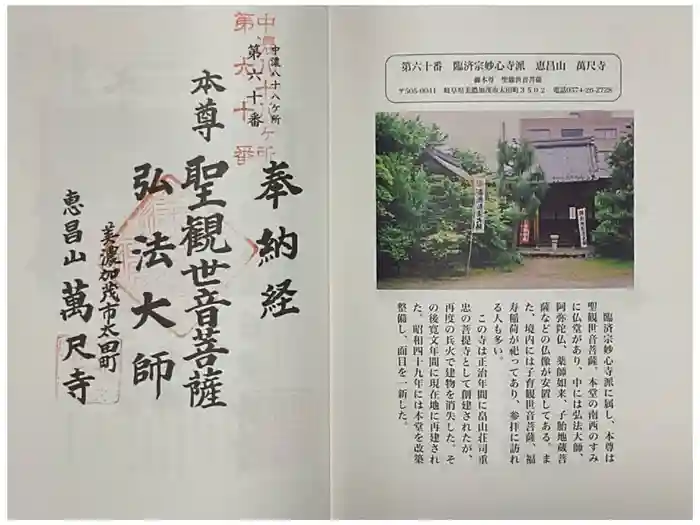 奉納経
中濃八十八ケ所
第六十番
中濃八十八ケ所
第六十番
本尊
聖観世音菩薩
弘法大師
美濃加茂市太田町
恵昌山
萬尺寺
第六十番 臨済宗妙心寺派 恵昌山 萬尺寺
御本尊 聖観世音菩薩
〒505-0041 岐阜県美濃加茂市太田町3502 電話0574-26-2728
臨済宗妙心寺派に属し、本尊は
聖観世音菩薩。本堂の南西のすみ
に仏堂があり、中には弘法大師、
阿弥陀仏、薬師如来、子胎地蔵菩
薩などの仏像が安置してある。ま
た、境内には子育観世音菩薩、福
寿稲荷が祀ってあり、参拝に訪れ
る人も多い。
この寺は正治年間に畠山荘司重
忠の菩提寺として創建されたが、
再度の兵火で建物を消失した。そ
の後寛文年間に現在地に再建され
た。昭和四十九年には本堂を改築
整備し、面目を一新した。